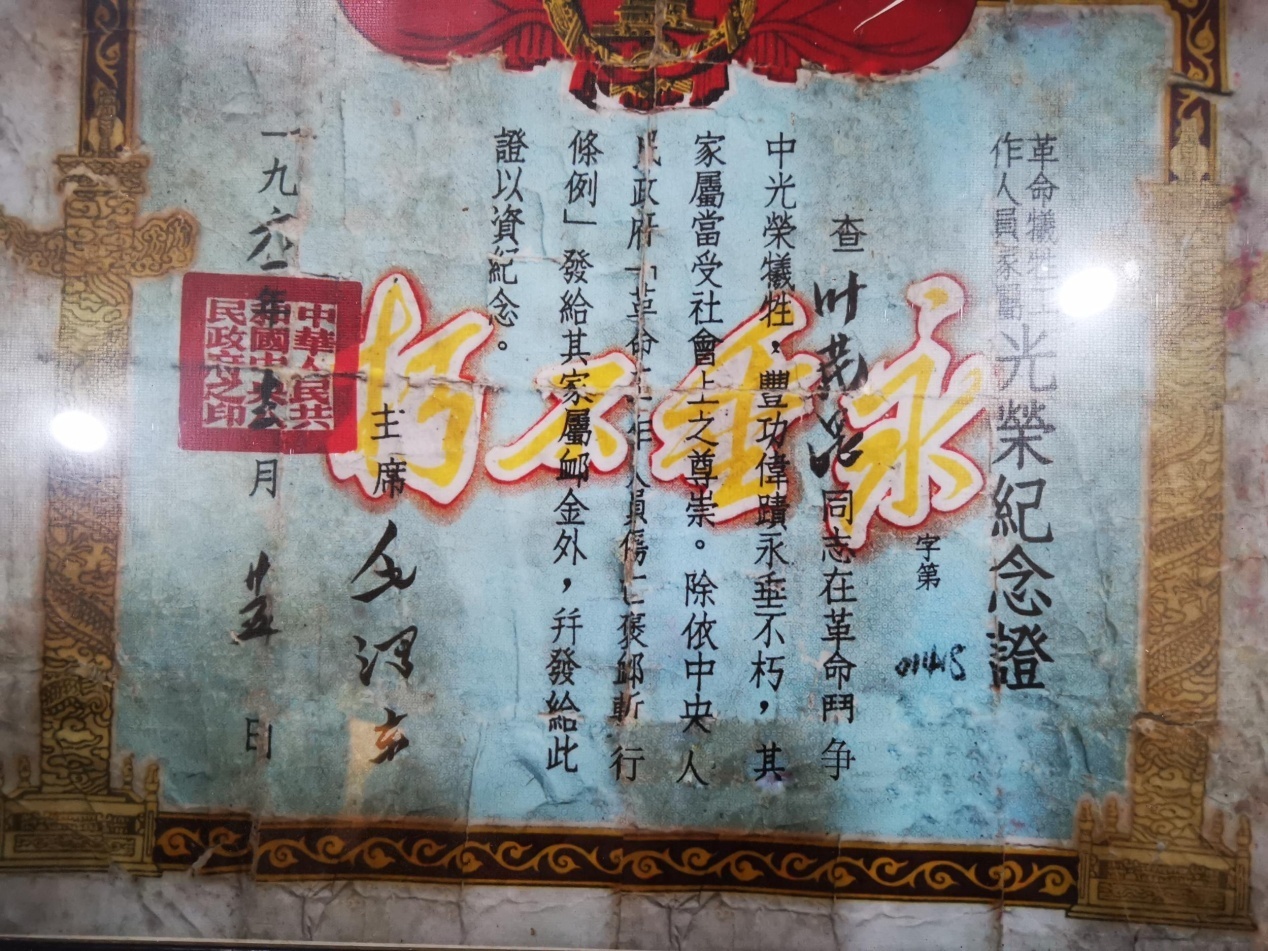 革命犧牲工
作人員家屬
光榮紀念證
字第
011415
查
同志在革命鬥争
中光榮犧牲，豐功偉蹟永垂不朽，其
家屬當受社會上之尊崇。除依中央人
民政府「革命工作人員傷亡褒卹暫行
條例」發給其家屬卹金外，幷發給此
證以資紀念。
永垂不朽
主席 毛澤東
一九六一年 月 廿五 日
中華人民共
和國中央人
民政府之印